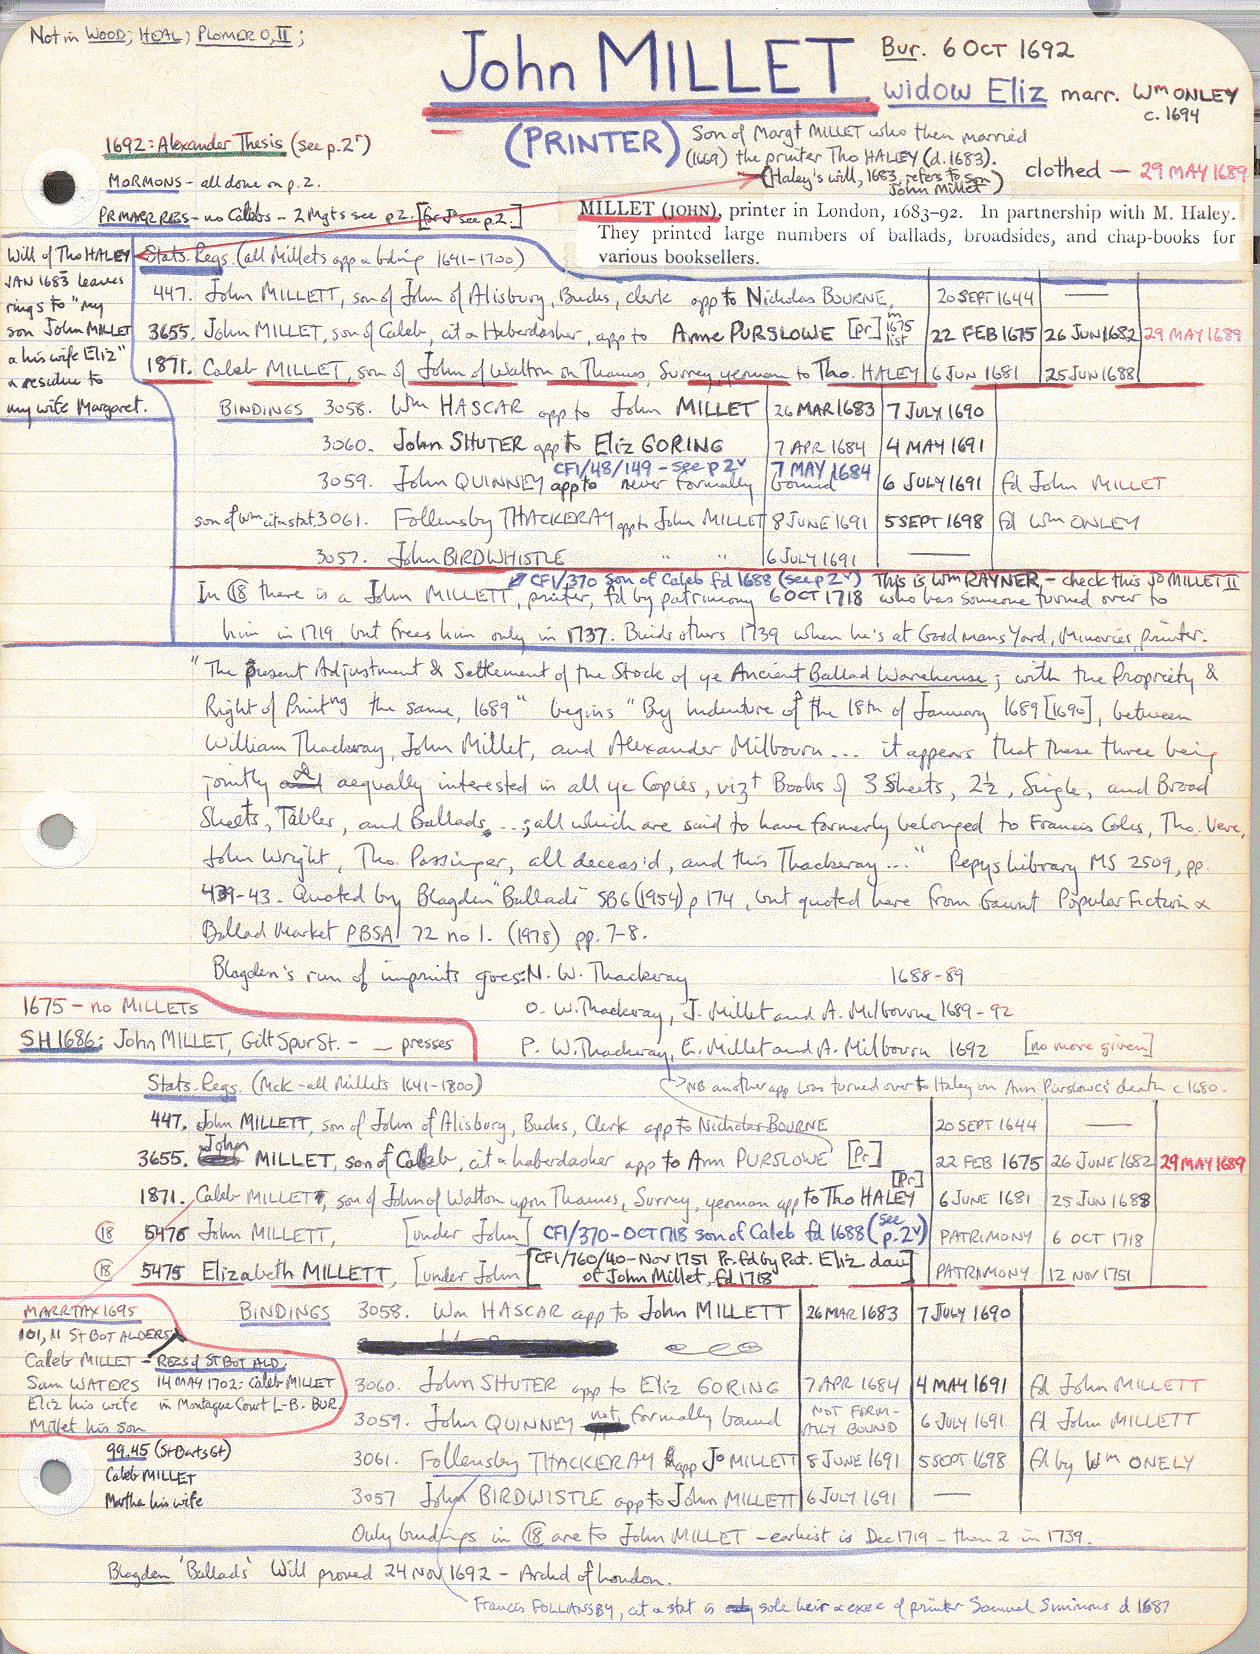 Not in WOOD; HEAL; PLOMER O, II;
John MILLET
Bur. 6 OCT 1692
widow Eliz marr. Wm ONLEY
c. 1694
(PRINTER)
Son of Margt MILLET who then married
(1669) the printer Tho HALEY (d. 1683).
(Haley's will, 1683, refers to son
John Millet)
clothed — 29 MAY 1689
1692: Alexander Thesis (see p. 2r)
MORMONS - all done on p. 2.
PR MARR REGS - no Calebs - 2 Mgts see p 2. [for Js see p 2.]
MILLET (JOHN), printer in London, 1683–92. In partnership with M. Haley.
They printed large numbers of ballads, broadsides, and chap-books for
various booksellers.
Will of Tho HALEY
JAN 1683 leaves
rings to "my
son John MILLET
& his wife Eliz"
& residue to
my wife Margaret.
Stats. Regs. (all Millets app & bding 1641-1700)
447. John MILLETT, son of John of Alisbury, Bucks, clerk app to Nicholas BOURNE. 20 SEPT 1644 —
3655. John MILLET, son of Caleb, cit & Haberdasher, app to Anne PURSLOWE [pr] in 1675 list 22 FEB 1675 26 JUN 1682 29 MAY 1689
1871. Caleb MILLET, son of John of Walton on Thames, Surrey, yeoman to Tho. HALEY 6 JUN 1681 25 JUN 1688
BINDINGS 3058. Wm HASCAR app to John MILLET 26 MAR 1683 7 JULY 1690
3060. John SHUTER app to Eliz GORING 7 APR 1684 4 MAY 1691
CF1/48/149 - see p 2v 7 MAY 1684
3059. John QUINNEY app to never formally bound 6 JULY 1691 fd John MILLET
son of Wm cit & stat. 3061. Follensby THACKERAY app to John MILLET 8 JUNE 1691 5 SEPT 1698 fd Wm ONLEY
3057. John BIRDWHISTLE " " 6 JULY 1691 —
CF1/370 son of Caleb fd 1688 (see p 2v) This is Wm RAYNER - check this Jo MILLET II
In 18 there is a John MILLETT, printer, fd by patrimony 6 OCT 1718 who has someone turned over to
him in 1719 but frees him only in 1737. Binds others 1739 when he's at Goodmans Yard, Minories, printer.
"The Present Adjustment & Settlement of the Stock of ye Ancient Ballad Warehouse; with the Propriety &
Right of Printng the same, 1689" begins "By Indenture of the 18th of January 1689 [1690], between
William Thackeray, John Millet, and Alexander Milbourn... it appears that these three being
jointly & aequally interested in all ye Copies, vizt Books of 3 Sheets, 2½, Single, and Broad
Sheets, Tables, and Ballads ...; all which are said to have formerly belonged to Francis Coles, Tho. Vere,
John Wright, Tho. Passinger, all deceas'd, and this Thackeray ..." Pepys Library MS 2509, pp.
439-43. Quoted by Blagden "Ballads" SB 6 (1954) p 174, but quoted here from Gaunt Popular Fiction &
Ballad Market PBSA 72 no 1. (1978) pp. 7-8.
Blagden's run of imprints goes: N. W. Thackeray 1688-89
O. W. Thackeray, J. Millet and A. Milbourne 1689-92
P. W. Thackeray, E. Millet and A. Milbourn 1692 [no more given]
1675 - no MILLETS
SH 1686: John MILLET, Gilt Spur St. - — presses
Stats. Regs. (McK - all Millets 1641-1800)
NB another app was turned over to Haley on Ann Purslowe's death c 1680.
447. John MILLETT, son of John of Alisbury, Bucks, Clerk app to Nicholas BOURNE 20 SEPT 1644 —
3655. John MILLET, son of Caleb, cit & haberdasher app to Ann PURSLOWE [Pr] 22 FEB 1675 26 JUNE 1682 29 MAY 1689
1871. Caleb MILLET, son of John of Walton upon Thames, Surrey, yeoman app to Tho HALEY [Pr] 6 JUNE 1681 25 JUN 1688
18 5476 John MILLETT, [under John] CF1/370 - OCT 1718 son of Caleb fd 1688 (see p. 2v) PATRIMONY 6 OCT 1718
18 5475 Elizabeth MILLETT, [under John] [CF1/760/40 - Nov 1751 Pr. fd by Pat. Eliz dau of John Millet, fd 1718] PATRIMONY 12 NOV 1751
MARR TAX 1695
101, 11 St BOT ALDERS
Caleb MILLET - REGS of St BOT ALD.
Sam WATERS 14 MAY 1702: Caleb MILLET
Eliz his wife in Montague Court L-B. BUR.
Millet his son
99.45 (St Barts Gt)
Caleb MILLET
Martha his wife
BINDINGS 3058. Wm HASCAR app to John MILLETT 26 MAR 1683 7 JULY 1690
3060. John SHUTER app to Eliz GORING 7 APR 1684 4 MAY 1691 fd John MILLETT
3059. John QUINNEY not formally bound NOT FORMALLY BOUND 6 JULY 1691 fd John MILLETT
3061. Follensby THACKERAY app Jo MILLETT 8 JUNE 1691 5 SEPT 1698 fd by Wm ONELY
3057 John BIRDWISTLE app to John MILLETT 6 JULY 1691 —
Only bindings in 18 are to John MILLET - earliest is Dec 1719 - then 2 in 1739.
Blagden 'Ballads' Will proved 24 NOV 1692 - Archd of London.
Francis FOLLIANSBY, cit & stat is sole heir & exec of printer Samuel Simmons d 1687